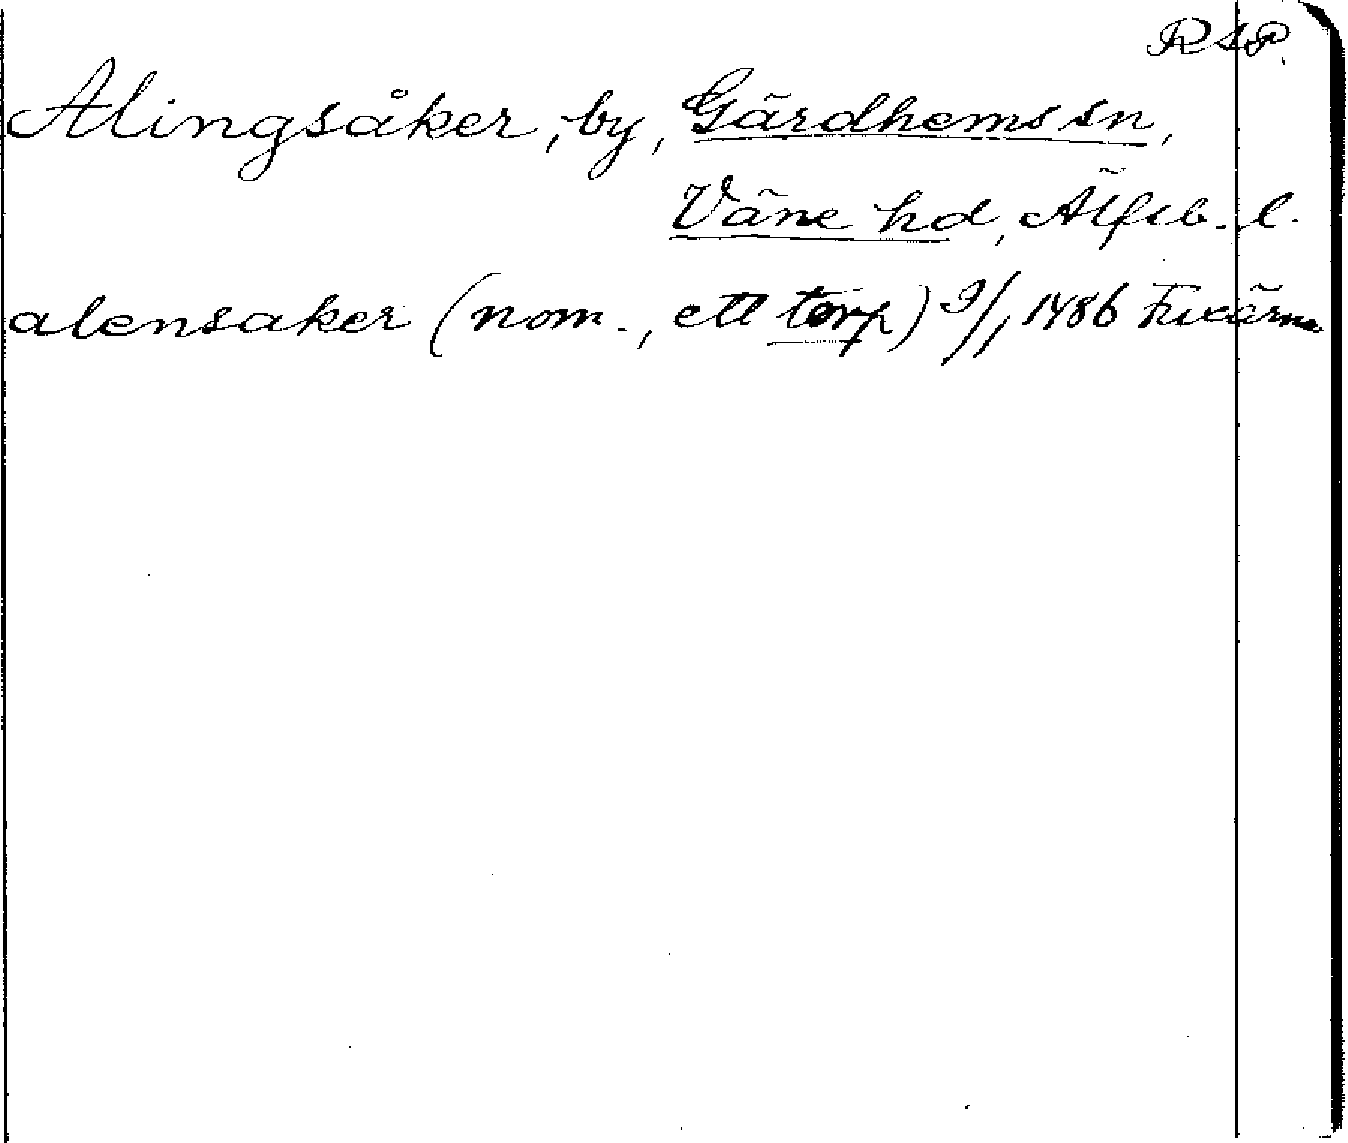 RAP.
Alingsåker, by, Gärdhems sn,
Väne hd, Älfsb. l.
alensaker (nom., ett torp) 9/1 1486